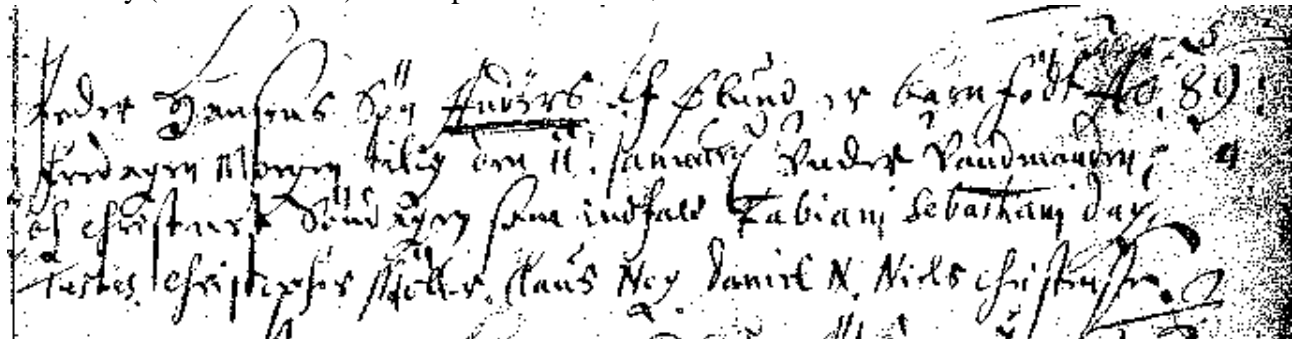 Peder Hansens Søn Anders af Lund er barn født Ao 89.
fredagen Morgen tilig den 11. Januarij Under Vandmanden,
och christnet Søndagen som indfald Fabiani Sebastiani dag.
Testes. Christopher Møller, Claus Daniel N. Niels christensen.